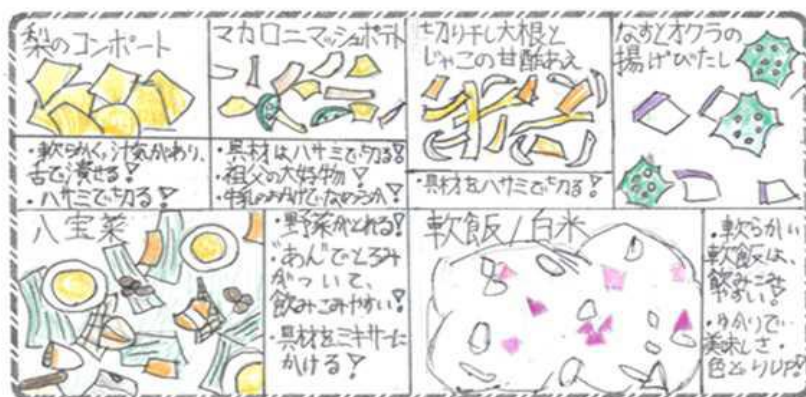 梨のコンポート
・軟らかく、汁気があり、
舌で潰せる!
・ハサミで切る!
マカロニマッシュポテト
・具材はハサミで切る!
・祖父の大好物!
・牛乳のおかげでなめらか!
切り干し大根と
じゃこの甘酢あえ
・具材をハサミで切る!
なすとオクラの
揚げびたし
八宝菜
・野菜がとれる!
・"あん"でとろみ
がついて、
飲みこみやすい!
・具材をミキサーに
かける!
軟飯/白米
・軟らかい
軟飯は、
飲みこみ
やすい。
・ゆかりで
美味しさ・
色どりUP!